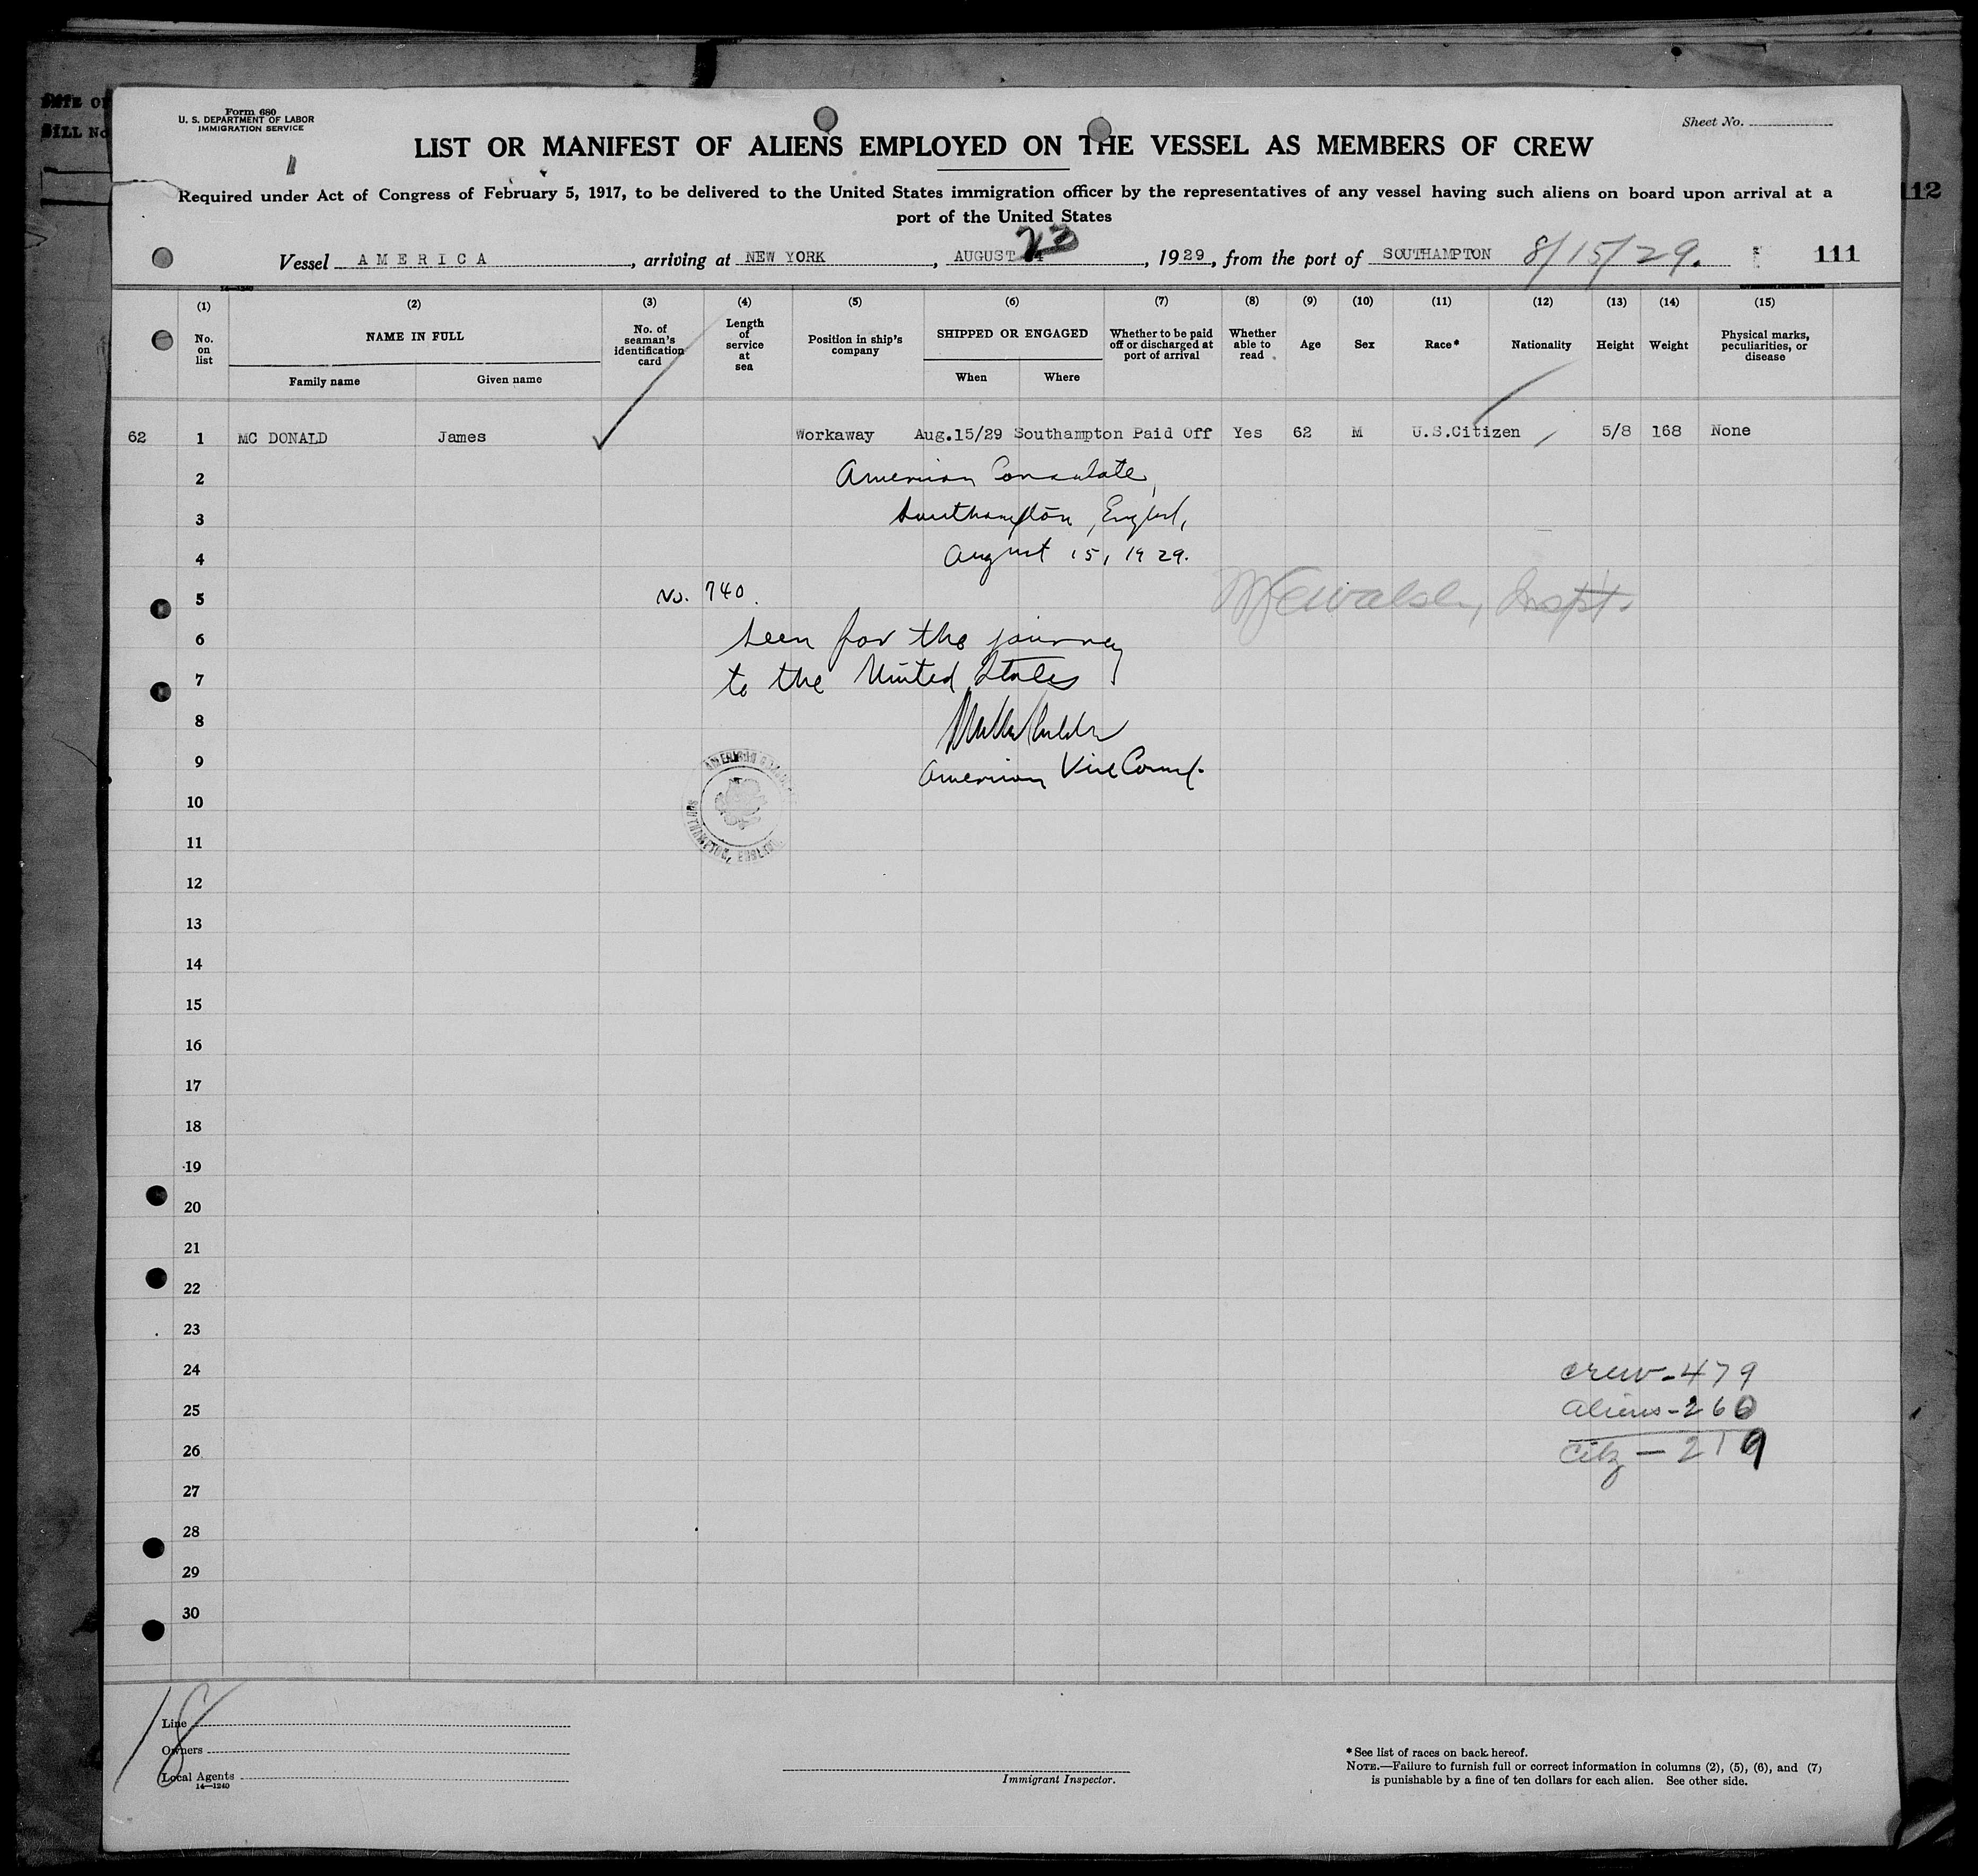 Form 680
U. S. DEPARTMENT OF LABOR
IMMIGRATION SERVICE
Sheet No.
LIST OR MANIFEST OF ALIENS EMPLOYED ON THE VESSEL AS MEMBERS OF CREW
Required under Act of Congress of February 5, 1917, to be delivered to the United States immigration officer by the representatives of any vessel having such aliens on board upon arrival at a
port of the United States
112
Vessel AMERICA, arriving at NEW YORK, AUGUST 23, 1929, from the port of SOUTHAMPTON 8/15/29. 111
(1) (2) (3) (4) (5) (6) (7) (8) (9) (10) (11) (12) (13) (14) (15)
No. on list
NAME IN FULL
Family name Given name
No. of seaman's identification card
Length of service at sea
Position in ship's company
SHIPPED OR ENGAGED
When Where
Whether to be paid off or discharged at port of arrival
Whether able to read
Age
Sex
Race*
Nationality
Height
Weight
Physical marks, peculiarities, or disease
62 1 MC DONALD James Workaway Aug.15/29 Southampton Paid Off Yes 62 M U.S.Citizen 5/8 168 None
2 American Consulate,
3 Southampton, England,
4 August 15, 1929.
5 No. 740.
6 Seen for the journey
7 to the United States
8
9 American Vice Consul.
10
11
SOUTHAMPTON, ENGLAND
12
13
14
15
16
17
18
19
20
21
22
23
24 Crew - 479
25 Aliens - 260
26 Citz - 219
27
28
29
30
18
Line
Owners
Local Agents
14—1240
Immigrant Inspector.
*See list of races on back hereof.
NOTE.—Failure to furnish full or correct information in columns (2), (5), (6), and (7)
is punishable by a fine of ten dollars for each alien. See other side.